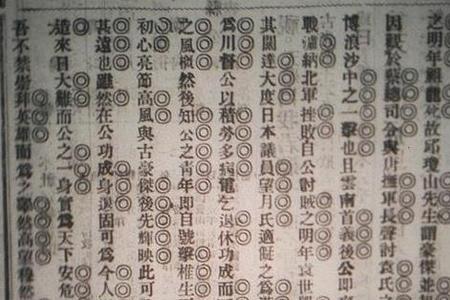 之明年祖龍死故邱瓊山先生謂豪傑並
因於蔡總司令與唐撫軍長聲討袁氏
博浪沙中之一擊也且雲南首義後公即
戰瀘納北軍挫敗自公討賊之明年袁世
其闊達大度日本議員望月氏適之為
為川督公以積勞多病電乞退休功成而
之風概然後知公之青年即自號擊椎生
初心亮節高風與古豪傑後先輝映此可
甚遠也雖然在公功成身退固可為今人
造來日大難而公之一身實為天下安危
吾不禁崇拜英雄而為之顒然高望穆然